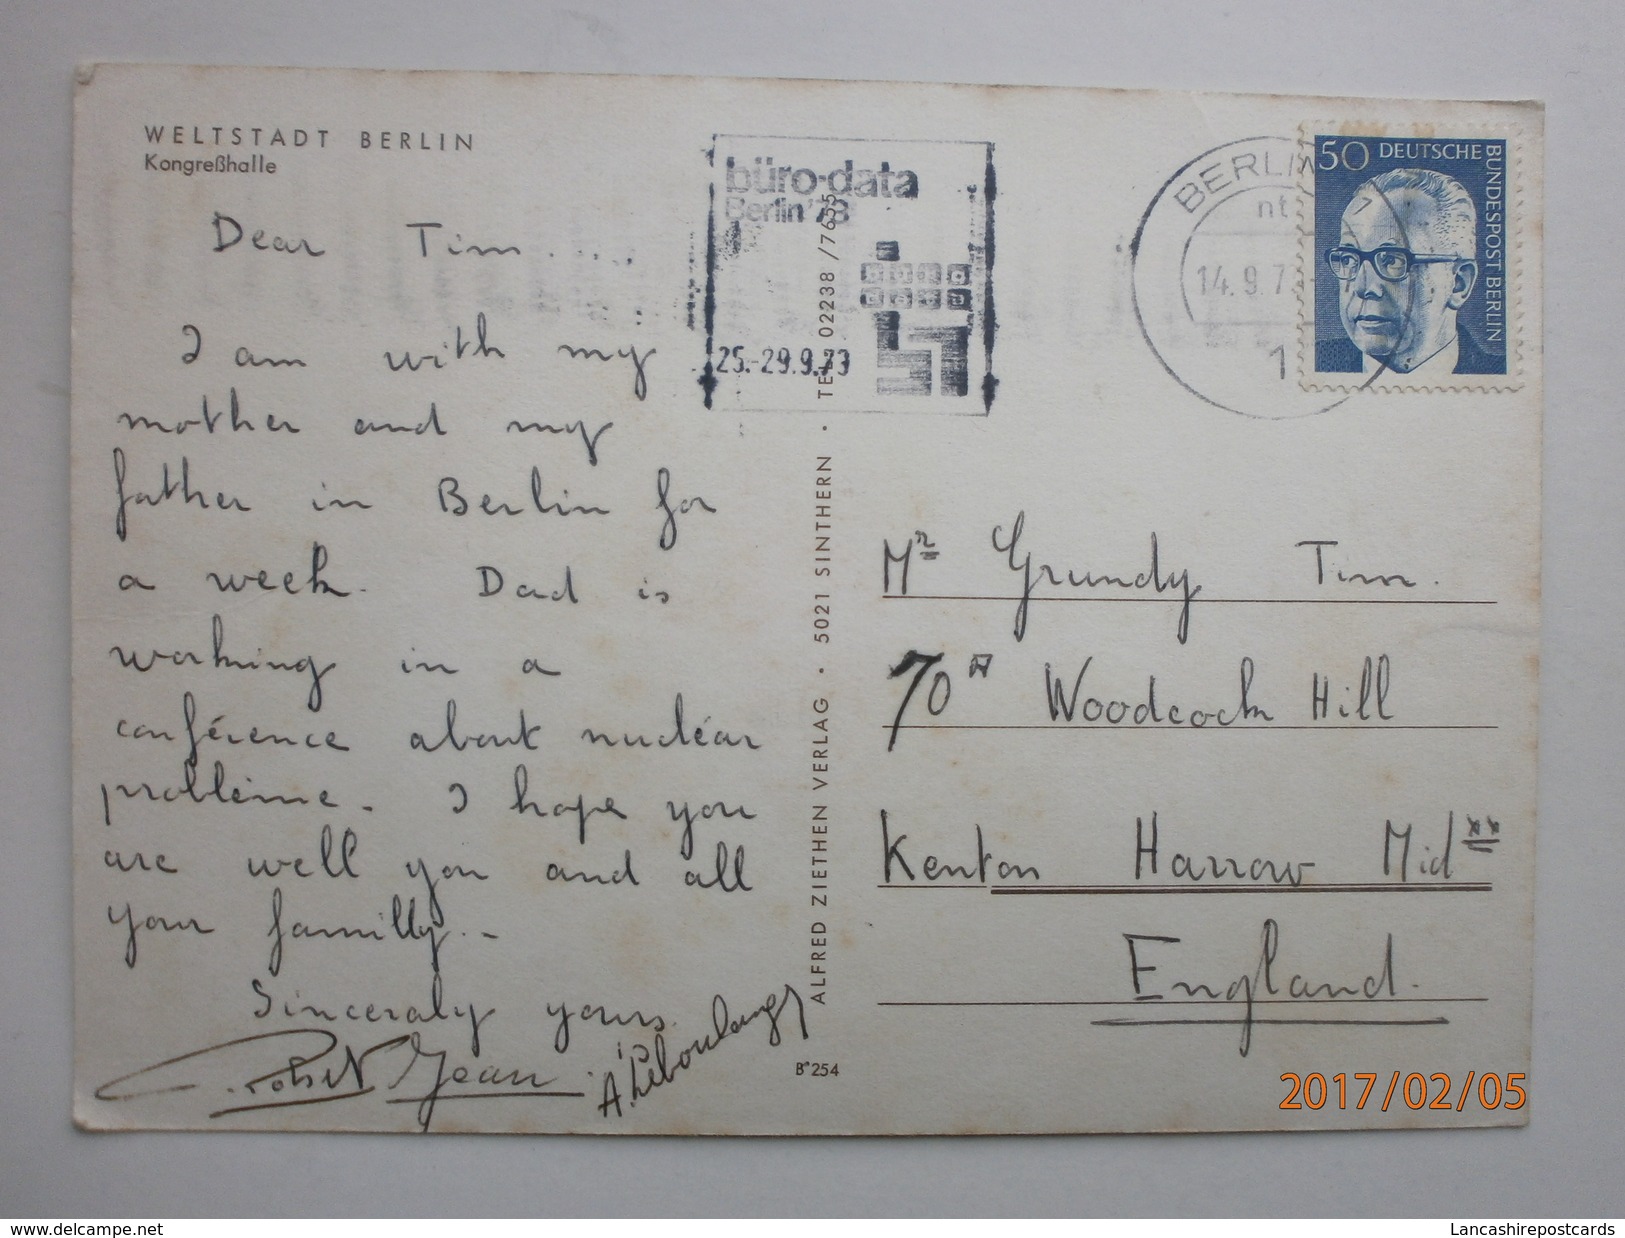 WELTSTADT BERLIN
Kongreßhalle
Dear Tim....
I am with my
mother and my
father in Berlin for
a week. Dad is
working in a
conférence about nucléar
problème. I hope you
are well you and all
your familly..
Sinceraly yours.
Jean
büro-data
Berlin '73
25.-29.9.73
BERLIN
14.9.73
1
50 DEUTSCHE
BUNDESPOST BERLIN
ALFRED ZIETHEN VERLAG · 5021 SINTHERN · TEL. 02238/7635
B 254
Mr Grundy Tim.
70A Woodcock Hill
Kenton Harrow Midxx
England.
2017/02/05
www.delcampe.net
Lancashirepostcards